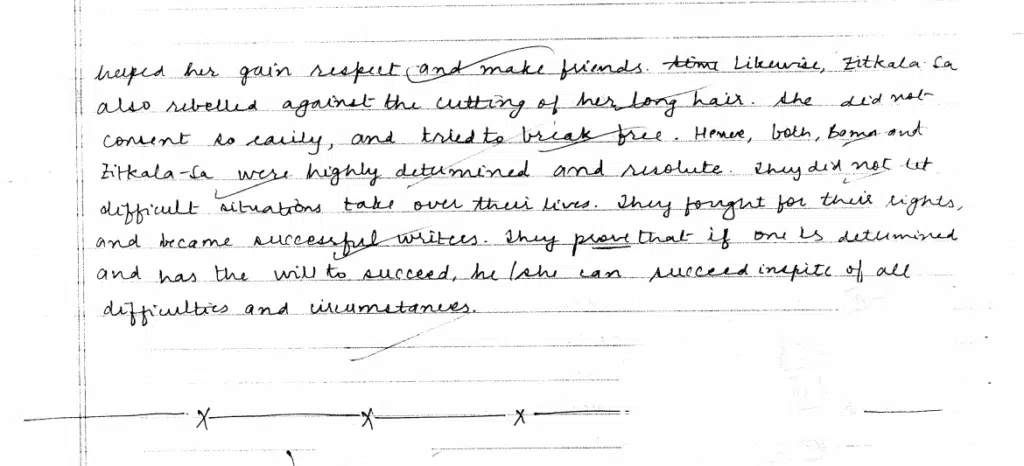 helped her gain respect, and make friends. Likewise, Zitkala-Sa
also rebelled against the cutting of her long hair. She did not
consent so easily, and tried to break free. Hence, both, Bama and
Zitkala-Sa were highly determined and resolute. They did not let
difficult situations take over their lives. They fought for their rights,
and became successful writers. They prove that if one is determined
and has the will to succeed, he/she can succeed inspite of all
difficulties and circumstances.